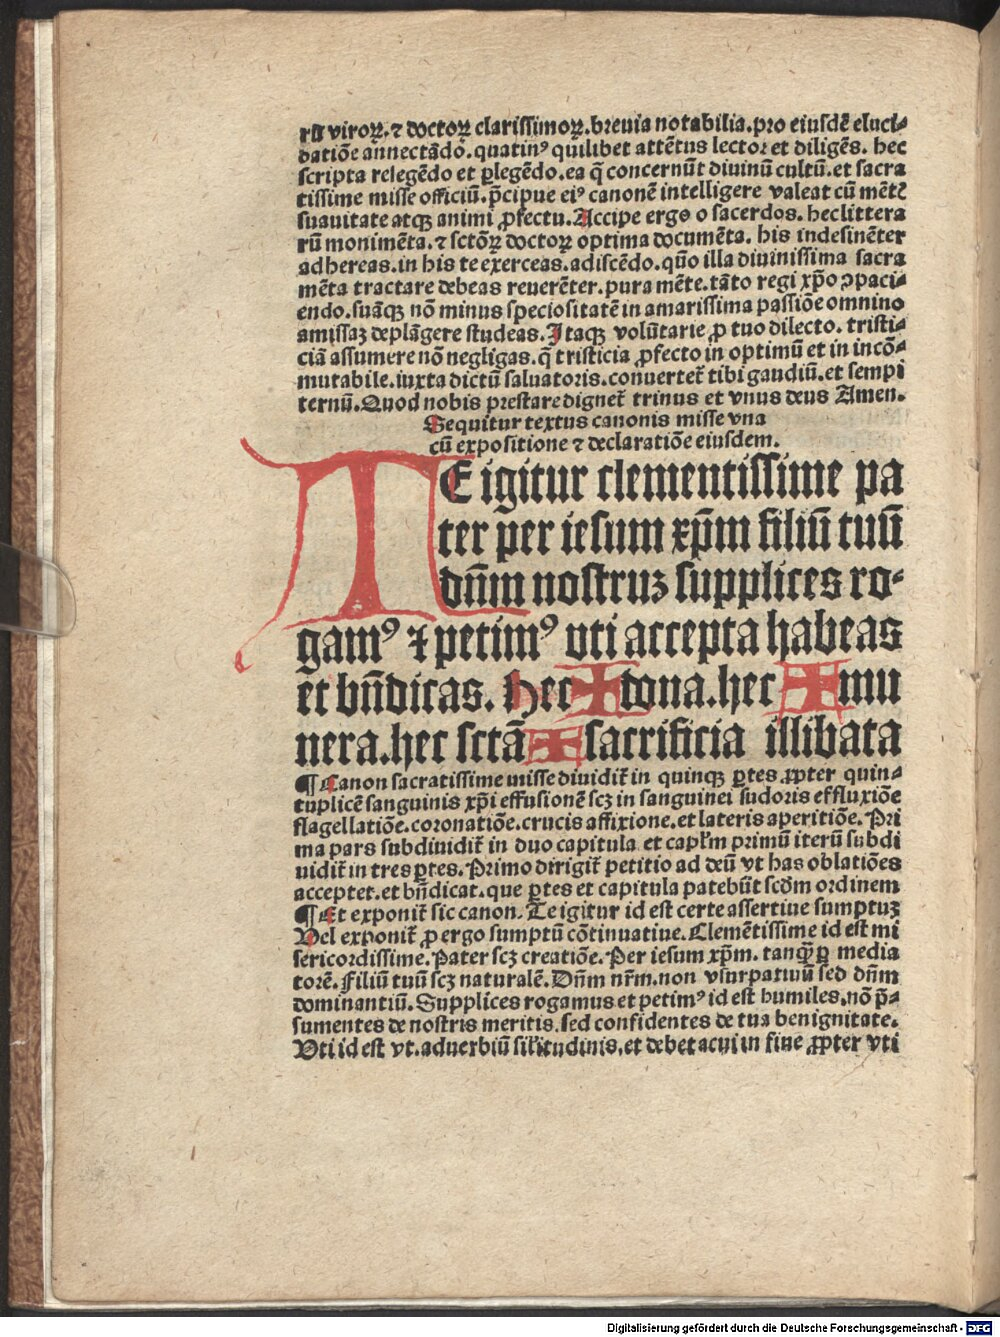 rū viroꝝ. ⁊ doctoꝝ clarissimoꝝ. breuia notabilia. pro eiusdē eluci⸗
datiōe annectādo. quatinꝰ quilibet attētus lector et diligēs. hec
scripta relegēdo et ꝑlegēdo. ea q̄ concernūt diuinū cultū. et sacra
tissime misse officiū. p̄cipue eiꝰ canonē intelligere valeat cū mētē
suauitate atqꝫ animi ꝓfectu. Accipe ergo o sacerdos. hec littera
rū monimēta. ⁊ sctōꝝ doctoꝝ optima documēta. his indesinēter
adhereas. in his te exerceas. adiscēdo. quō illa diuinissima sacra
mēta tractare debeas reuerēter. pura mēte. tāto regi xp̄o ↄpaci⸗
endo. suāqꝫ nō minus speciositatē in amarissima passiōe omnino
amissaꝫ deplāgere studeas. Itaqꝫ volūtarie ꝓ tuo dilecto. tristi⸗
ciā assumere nō negligas. q̄ tristicia ꝓfecto in optimū et in incō⸗
mutabile. iuxta dictū saluatoris. conuertet᷑ tibi gaudiū. et sempi
ternū. Quod nobis prestare dignet᷑ trinus et vnus deus Amen.
Sequitur textus canonis misse vna
cū expositione ⁊ declaratiōe eiusdem.
TE igitur clementissime pa
ter per iesum xp̄m filiū tuū
dn̄m nostruꝫ supplices ro⸗
gamꝰ ⁊ petimꝰ vti accepta habeas
et bn̄dicas. Hec ✠ dona. hec ✠ mu
nera. hec sctā ✠ sacrificia illibata
¶ Canon sacratissime misse diuidit᷑ in quinqꝫ ꝑtes ꝓpter quin⸗
tuplicē sanguinis xp̄i effusionē scꝫ in sanguinei sudoris effluxiōe
flagellatiōe. coronatiōe. crucis affixione. et lateris aperitiōe. Pri
ma pars subdiuidit᷑ in duo capitula et capl̄m primū iterū subdi
uidit᷑ in tres ꝑtes. Primo dirigit᷑ petitio ad deū vt has oblatiōes
acceptet. et bn̄dicat. que ꝑtes et capitula patebūt scd̄m ordinem
¶ Et exponit᷑ sic canon. Te igitur id est certe assertiue sumptuꝫ
Vel exponit᷑ ꝓ ergo sumptū cōtinuatiue. Clemētissime id est mi
sericordissime. Pater scꝫ creatiōe. Per iesum xp̄m. tanqꝫ̄ ꝑ media
torē. Filiū tuū scꝫ naturalē. Dn̄m nr̄m. non vsurpatiuū sed dn̄m
dominantiū. Supplices rogamus et petimꝰ id est humiles. nō p̄⸗
sumentes de nostris meritis. sed confidentes de tua benignitate.
Vti id est vt. aduerbiū sil̄itudinis. et debet acui in fine ꝓpter vti
Digitalisierung gefördert durch die Deutsche Forschungsgemeinschaft - DFG